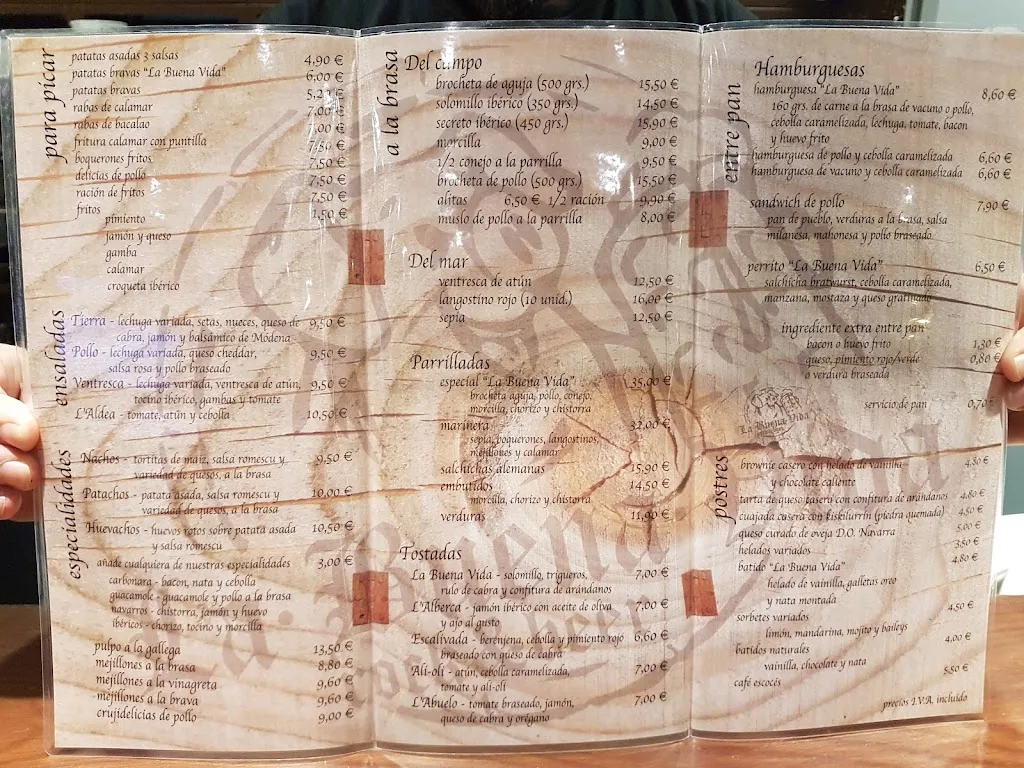 para picar
patatas asadas 3 salsas 4,90 €
patatas bravas "La Buena Vida" 6,00 €
patatas bravas 5,23 €
rabas de calamar 7,00 €
rabas de bacalao 7,00 €
fritura calamar con puntilla 7,50 €
boquerones fritos 7,50 €
delicias de pollo 7,50 €
ración de fritos 7,50 €
fritos 1,50 €
pimiento
jamón y queso
gamba
calamar
croqueta ibérico
ensaladas
Tierra - lechuga variada, setas, nueces, queso de 9,50 €
cabra, jamón y balsámico de Módena
Pollo - lechuga variada, queso cheddar, 9,50 €
salsa rosa y pollo braseado
Ventresca - lechuga variada, ventresca de atún, 9,50 €
tocino ibérico, gambas y tomate
L'Aldea - tomate, atún y cebolla 10,50 €
especialidades
Nachos - tortitas de maíz, salsa romescu y 9,50 €
variedad de quesos, a la brasa
Patachos - patata asada, salsa romescu y 10,00 €
variedad de quesos, a la brasa
Huevachos - huevos rotos sobre patata asada 10,50 €
y salsa romescu
añade cualquiera de nuestras especialidades 3,00 €
carbonara - bacon, nata y cebolla
guacamole - guacamole y pollo a la brasa
navarros - chistorra, jamón y huevo
ibéricos - chorizo, tocino y morcilla
pulpo a la gallega 13,50 €
mejillones a la brasa 8,80 €
mejillones a la vinagreta 9,60 €
mejillones a la brava 9,60 €
crujidelicias de pollo 9,00 €
a la brasa
Del campo
brocheta de aguja (500 grs.) 15,50 €
solomillo ibérico (350 grs.) 14,50 €
secreto ibérico (450 grs.) 15,90 €
morcilla 9,00 €
1/2 conejo a la parrilla 9,50 €
brocheta de pollo (500 grs.) 15,50 €
alitas 6,50 € 1/2 ración 9,90 €
muslo de pollo a la parrilla 8,00 €
Del mar
ventresca de atún 12,50 €
langostino rojo (10 unid.) 16,00 €
sepia 12,50 €
Parrilladas
especial "La Buena Vida" 35,00 €
brocheta aguja, pollo, conejo,
morcilla, chorizo y chistorra
marinera 32,00 €
sepia, boquerones, langostinos,
mejillones y calamar
salchichas alemanas 15,90 €
embutidos 14,50 €
morcilla, chorizo y chistorra
verduras 11,90 €
Tostadas
La Buena Vida - solomillo, trigueros, 7,00 €
rulo de cabra y confitura de arándanos
L'Alberca - jamón ibérico con aceite de oliva 7,00 €
y ajo al gusto
Escalivada - berenjena, cebolla y pimiento rojo 6,60 €
braseado con queso de cabra
Ali-oli - atún, cebolla caramelizada, 7,00 €
tomate y ali-oli
L'Abuelo - tomate braseado, jamón, 7,00 €
queso de cabra y orégano
entre pan
Hamburguesas
hamburguesa "La Buena Vida" 8,60 €
160 grs. de carne a la brasa de vacuno o pollo,
cebolla caramelizada, lechuga, tomate, bacon
y huevo frito
hamburguesa de pollo y cebolla caramelizada 6,60 €
hamburguesa de vacuno y cebolla caramelizada 6,60 €
sandwich de pollo 7,90 €
pan de pueblo, verduras a la brasa, salsa
milanesa, mahonesa y pollo braseado
perrito "La Buena Vida" 6,50 €
salchicha bratwurst, cebolla caramelizada,
manzana, mostaza y queso gratinado
ingrediente extra entre pan
bacon o huevo frito 1,30 €
queso, pimiento rojo/verde 0,80 €
o verdura braseada
servicio de pan 0,70 €
La Buena Vida
postres
brownie casero con helado de vainilla 4,80 €
y chocolate caliente
tarta de queso casero con confitura de arándanos 4,80 €
cuajada casera con kiskilurrin (piedra quemada) 4,50 €
queso curado de oveja D.O. Navarra 5,00 €
helados variados 3,80 €
batido "La Buena Vida" 4,80 €
helado de vainilla, galletas oreo
y nata montada
sorbetes variados 4,50 €
limón, mandarina, mojito y baileys
batidos naturales 4,00 €
vainilla, chocolate y nata
café escocés 5,50 €
precios I.V.A. incluido